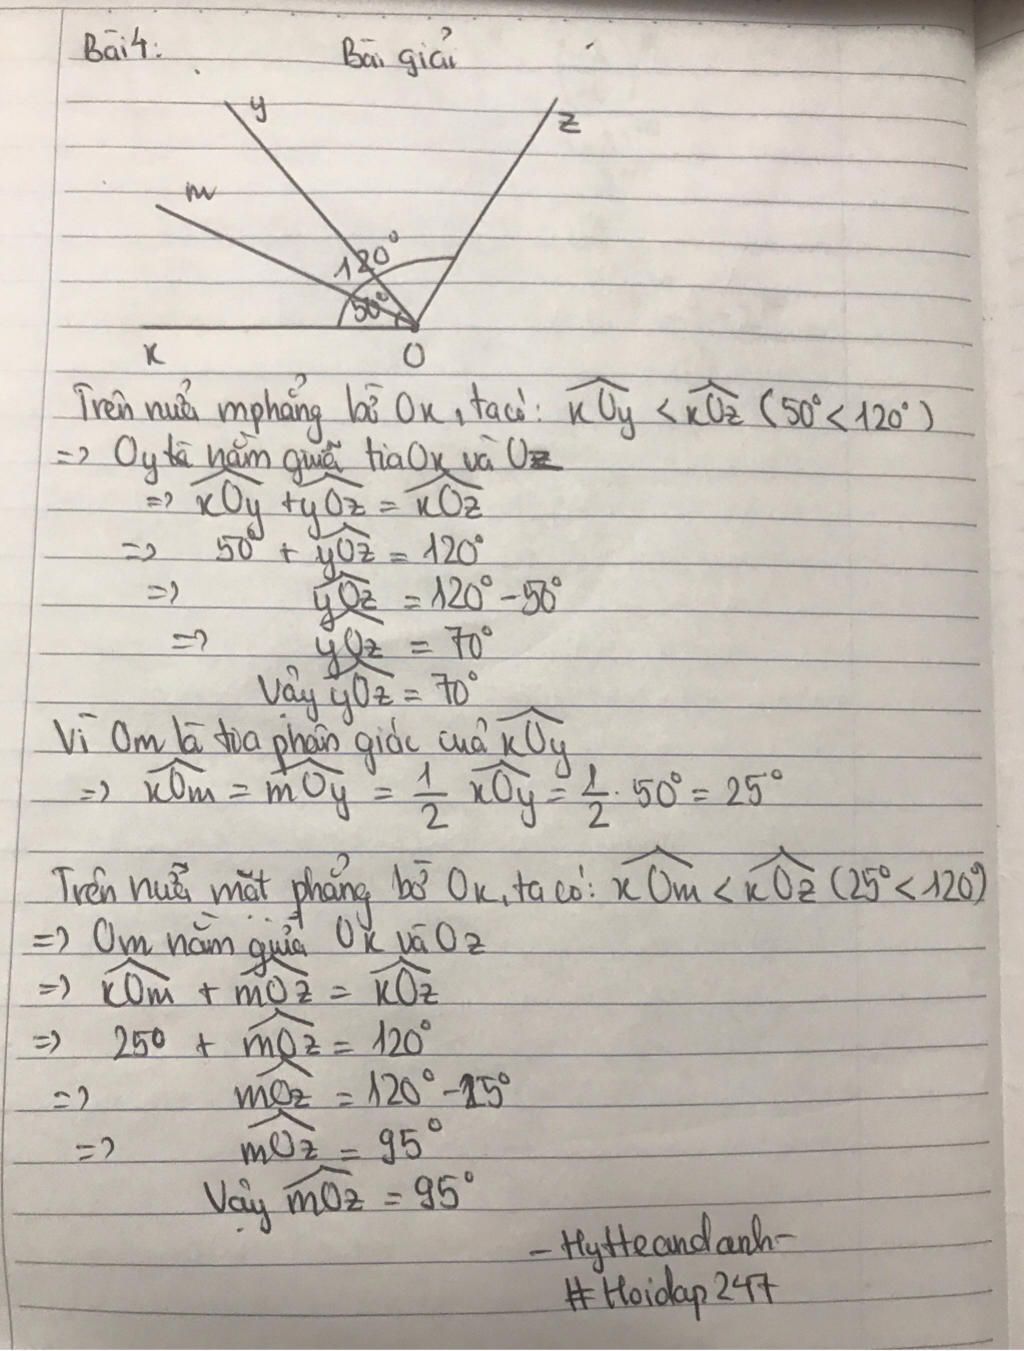 Bài 4:
Bài giải
y
z
m
120°
50°
x
O
Trên nửa mphẳng bờ Ox, ta có: xOy < xOz (50° < 120°)
=> Oy là nằm giữa tia Ox và Oz
=> xOy + yOz = xOz
=> 50° + yOz = 120°
=> yOz = 120° - 50°
=> yOz = 70°
Vậy yOz = 70°
Vì Om là tia phân giác cuả xOy
=> xOm = mOy = 1/2 xOy = 1/2 . 50° = 25°
Trên nửa mặt phẳng bờ Ox, ta có: xOm < xOz (25° < 120°)
=> Om nằm giữa Ox và Oz
=> xOm + mOz = xOz
=> 25° + mOz = 120°
=> mOz = 120° - 25°
=> mOz = 95°
Vậy mOz = 95°
- HyHeandanh -
# Hoidap247